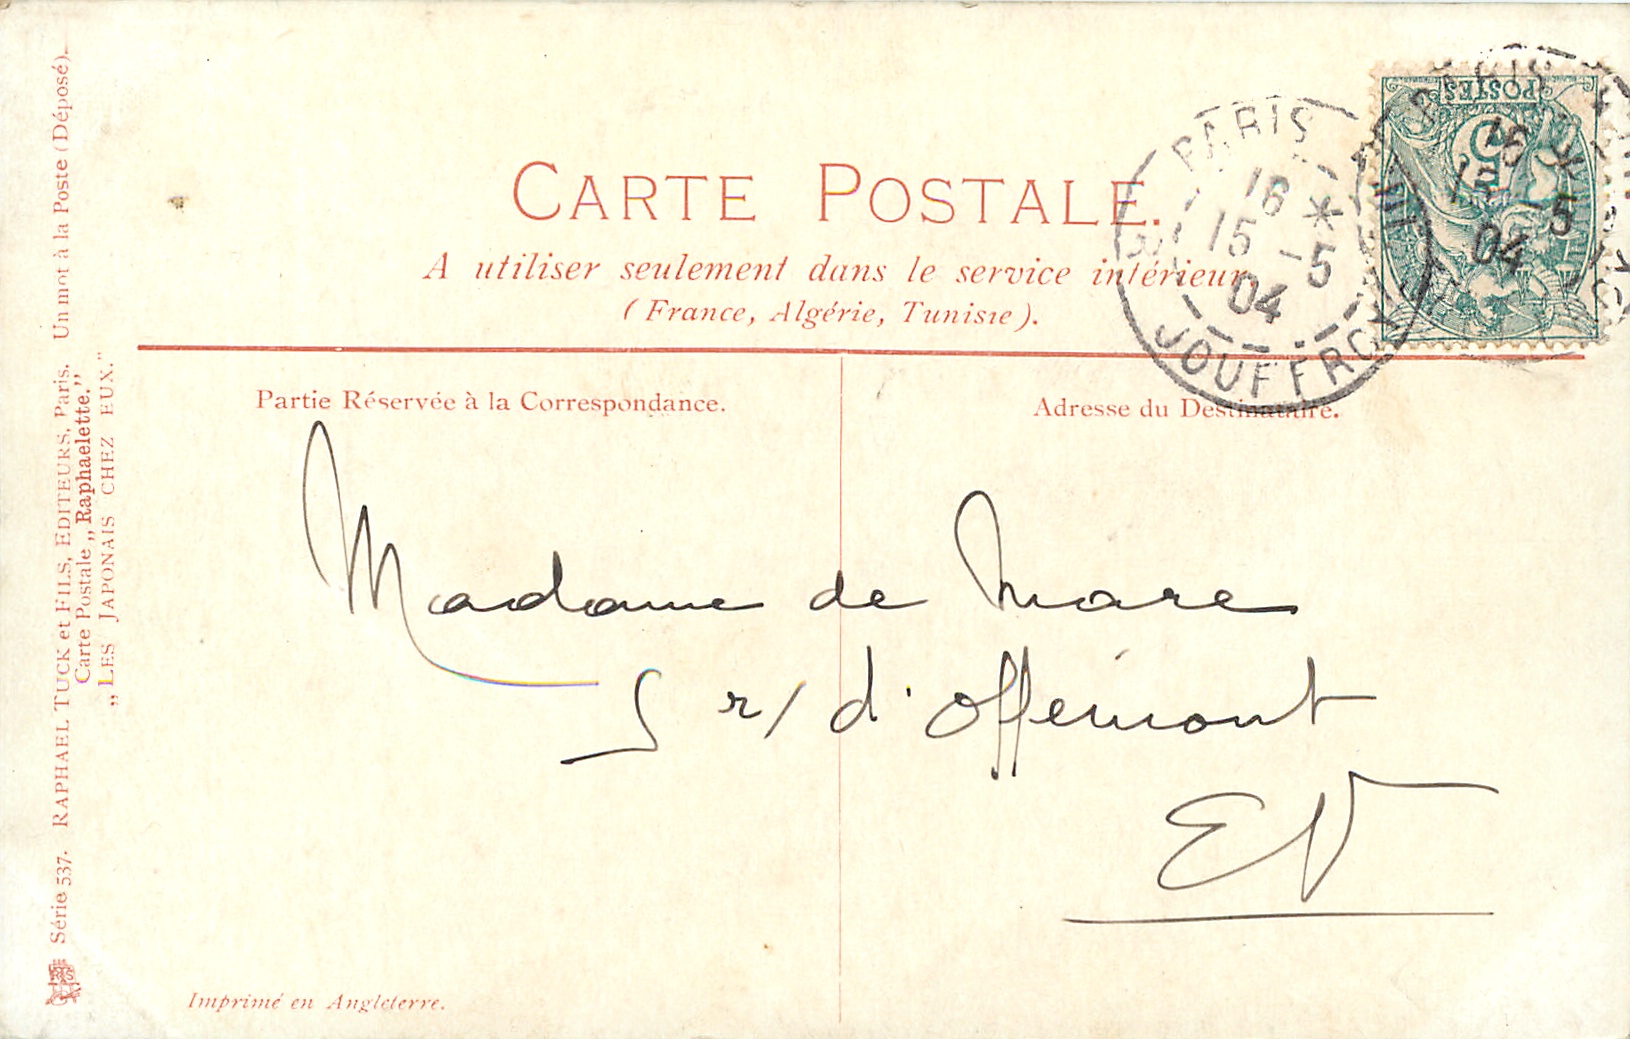 CARTE POSTALE.
A utiliser seulement dans le service intérieur.
(France, Algérie, Tunisie).
Partie Réservée à la Correspondance.
Adresse du Destinataire.
Madame de Mare
5 r/ d'Offémont
EV
Imprimé en Angleterre.
Série 537. RAPHAEL TUCK et FILS, EDITEURS, Paris. Un mot à la Poste (Déposé).
Carte Postale „Raphaelette."
„LES JAPONAIS CHEZ EUX."
PARIS
16 *
15 -5
04
JOUFFROY
POSTES
5
PARIS
16 *
15 -5
04